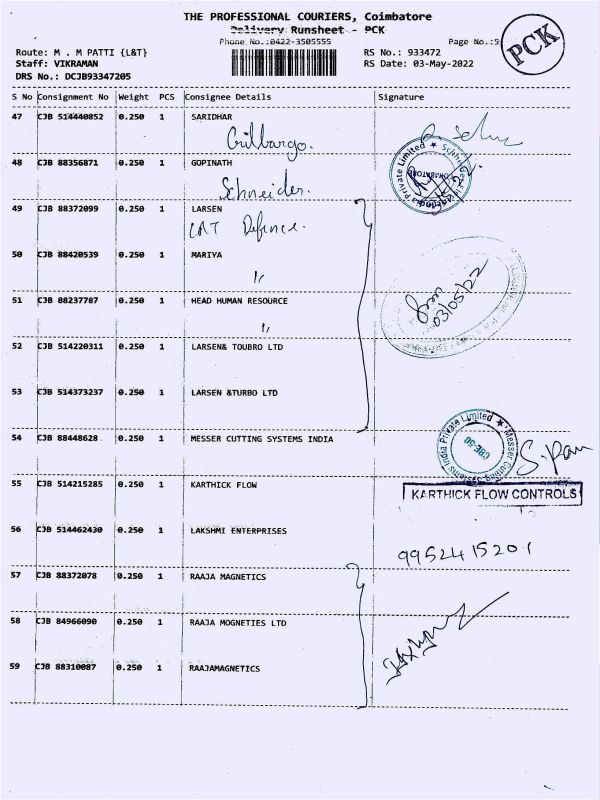 THE PROFESSIONAL COURIERS, Coimbatore
Delivery Runsheet - PCK
Phone No.:0422-3505555
Page No.:5
PCK
Route: M . M PATTI {L&T}
RS No.: 933472
Staff: VIKRAMAN
RS Date: 03-May-2022
DRS No.: DCJB93347205
S No Consignment No Weight PCS Consignee Details Signature
47 CJB 514440852 0.250 1 SARIDHAR
Gilbargo.
48 CJB 88356871 0.250 1 GOPINATH
Schneider.
49 CJB 88372099 0.250 1 LARSEN
L&T Defence.
50 CJB 88420539 0.250 1 MARIYA
51 CJB 88237787 0.250 1 HEAD HUMAN RESOURCE
03/05/22
52 CJB 514220311 0.250 1 LARSEN& TOUBRO LTD
53 CJB 514373237 0.250 1 LARSEN &TURBO LTD
54 CJB 88448628 0.250 1 MESSER CUTTING SYSTEMS INDIA
Messer Cutting Systems India Private Limited
CBE-50
55 CJB 514215285 0.250 1 KARTHICK FLOW
KARTHICK FLOW CONTROLS
56 CJB 514462430 0.250 1 LAKSHMI ENTERPRISES
9952415201
57 CJB 88372078 0.250 1 RAAJA MAGNETICS
58 CJB 84966090 0.250 1 RAAJA MOGNETIES LTD
59 CJB 88310087 0.250 1 RAAJAMAGNETICS